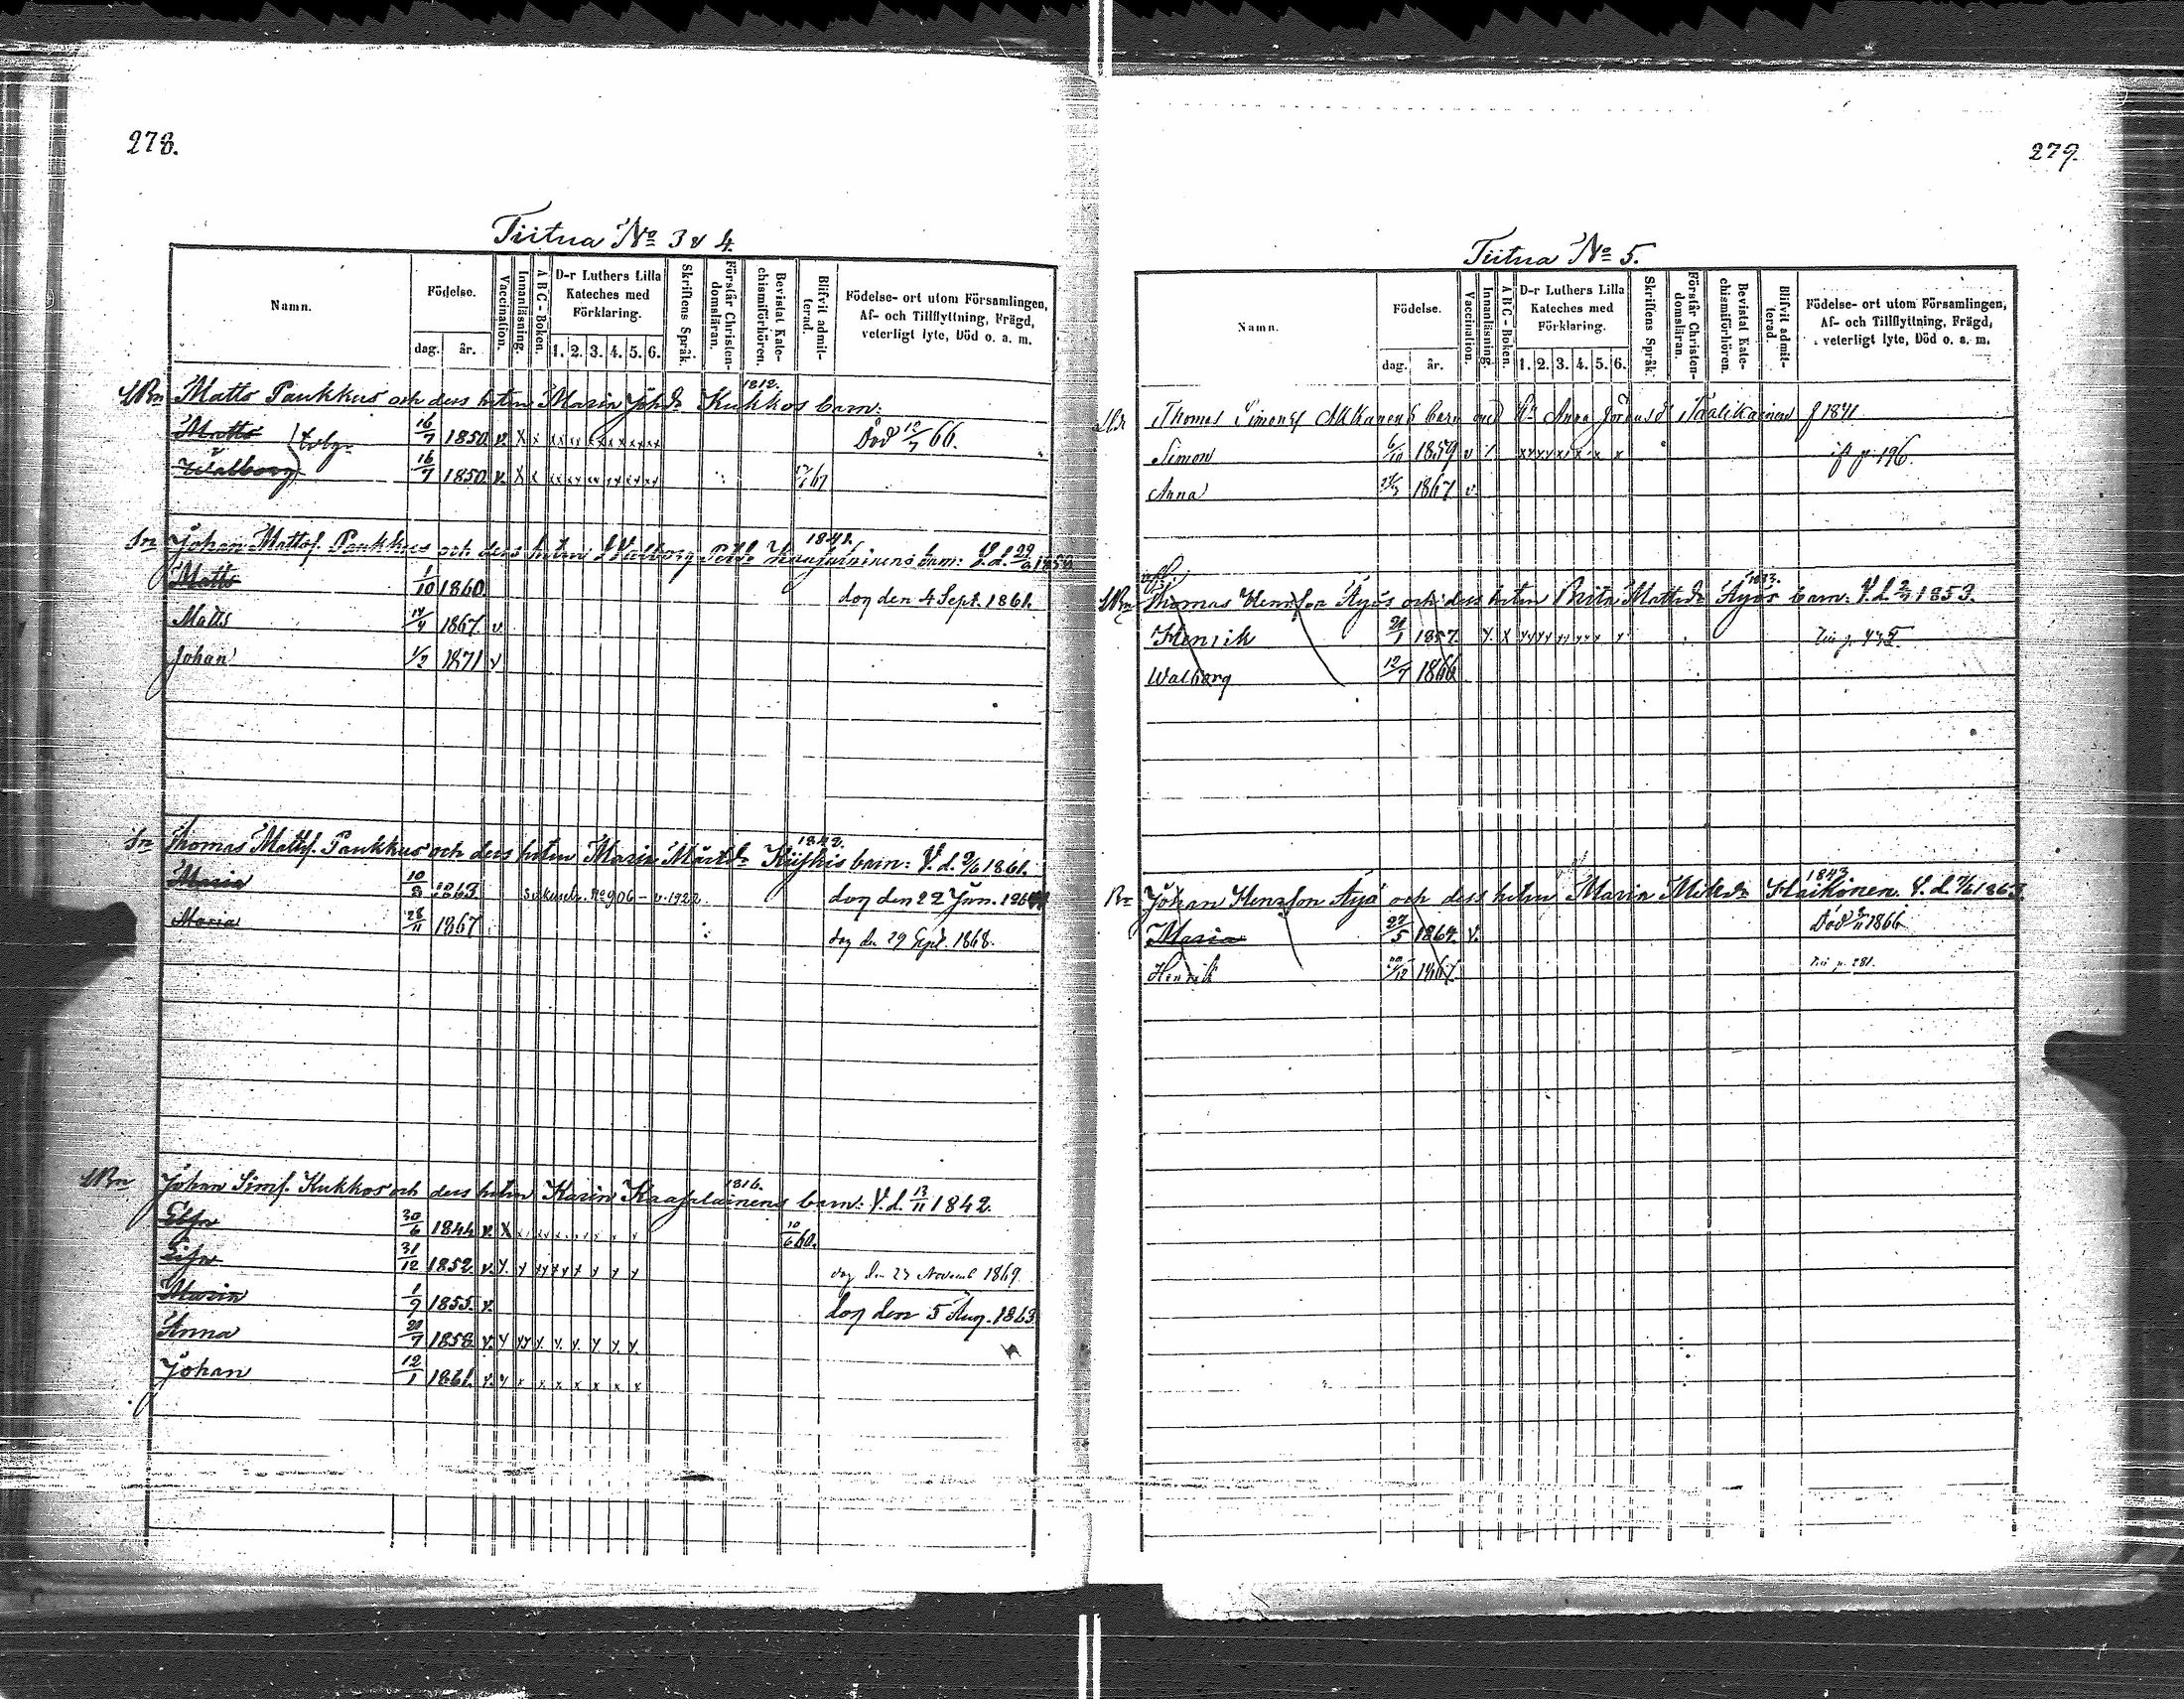 278.
Tiitua No 3 & 4.
Namn.
Födelse.
dag.
år.
Vaccination.
Innanläsning.
A B C - Boken.
D-r Luthers Lilla
Kateches med
Förklaring.
1. 2. 3. 4. 5. 6.
Skriftens Språk.
Förstår Christen-
domsläran.
Bevistat Kate-
chismiförhören.
Blifvit admit-
terad.
Födelse- ort utom Församlingen,
Af- och Tillflyttning, Frägd,
veterligt lyte, Död o. a. m.
1812.
Matts Paukkus och dess hstru Maria Johsdr Kukkos barn:
Matts 16/7 1850. v. x x xx xx xx xx xx xx Död 12/7 66.
Walborg 16/7 1850. v. x x xx xx xx xx xx xx 67
1841.
Johan Mattsf. Paukkus och dess hstru Walborg barn:
Matts 1/10 1860 dog den 4 Sept. 1861.
Matts 14/4 1867. v.
Johan 1/2 1871 v
1842.
Thomas Mattsf. Paukkus och dess hstru Maria barn: V. d. 9/6 1861.
Maria 10/8 1863. No 906 - v. 1922 dog den 22 Jun.
Maria 28/11 1867 dog den 29 Sept. 1868.
1816.
Johan Simsf. Kukkos och dess hstru Karin Kaapalainens barn: V. d. 13/11 1842.
Elsa 30/6 1844 v. x 10/6 60.
31/12 1852. v. y. y xx x x y y y dog den 23 Novemb 1869.
Maria 1/9 1855. v. dog den 5 Aug. 1863
Anna 20/7 1858. v. y yy y. y. y. y y y.
Johan 12/1 1861. v. y x x x x x x x
279.
Tiitua No 5.
Namn.
Födelse.
dag.
år.
Vaccination.
Innanläsning.
A B C - Boken.
D-r Luthers Lilla
Kateches med
Förklaring.
1. 2. 3. 4. 5. 6.
Skriftens Språk.
Förstår Christen-
domsläran.
Bevistat Kate-
chismiförhören.
Blifvit admit-
terad.
Födelse- ort utom Församlingen,
Af- och Tillflyttning, Frägd,
veterligt lyte, Död o. a. m.
Thomas Simonsf Akkanens barn med Anna Taalikainen f 1841
Simon 6/10 1859 v p. 196.
Anna 1867 v.
Thomas Henrsson Äyös och dess hstru Brita Mattsdr Äyös barn. V. d. 1853.
Henrik 1857. y x p. 475.
Walborg 12/7 1866
1843.
Johan Henrsson Äyö och dess hstru Maria Haikonen. V. d. 1863.
Maria 27/5 1864. v. Död 1866
Henrik 1867. p. 281.